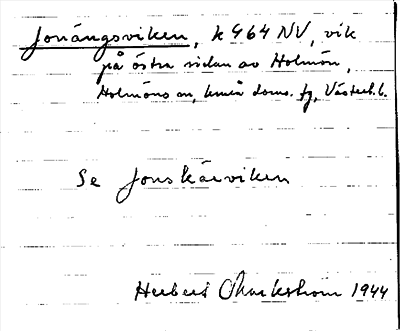 Jonängsviken, k 464 NV, vik
på östra sidan av Holmön,
Holmöns sn, Umeå doms. fg, Västerb. l.
Se Jonskärviken
Herbert Markström 1944